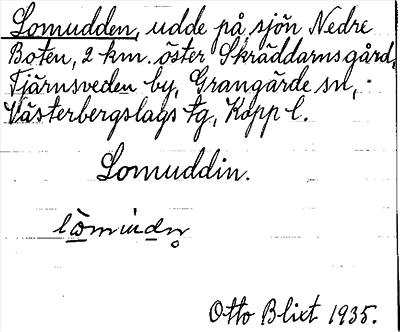 Lomudden, udde på sjön Nedre
Boten, 2 km. öster Skräddarns gård,
Tjärnsveden by, Grangärde sn,
Västerbergslags tg, Kopp l.
Lomuddin.
Otto Blixt 1935.